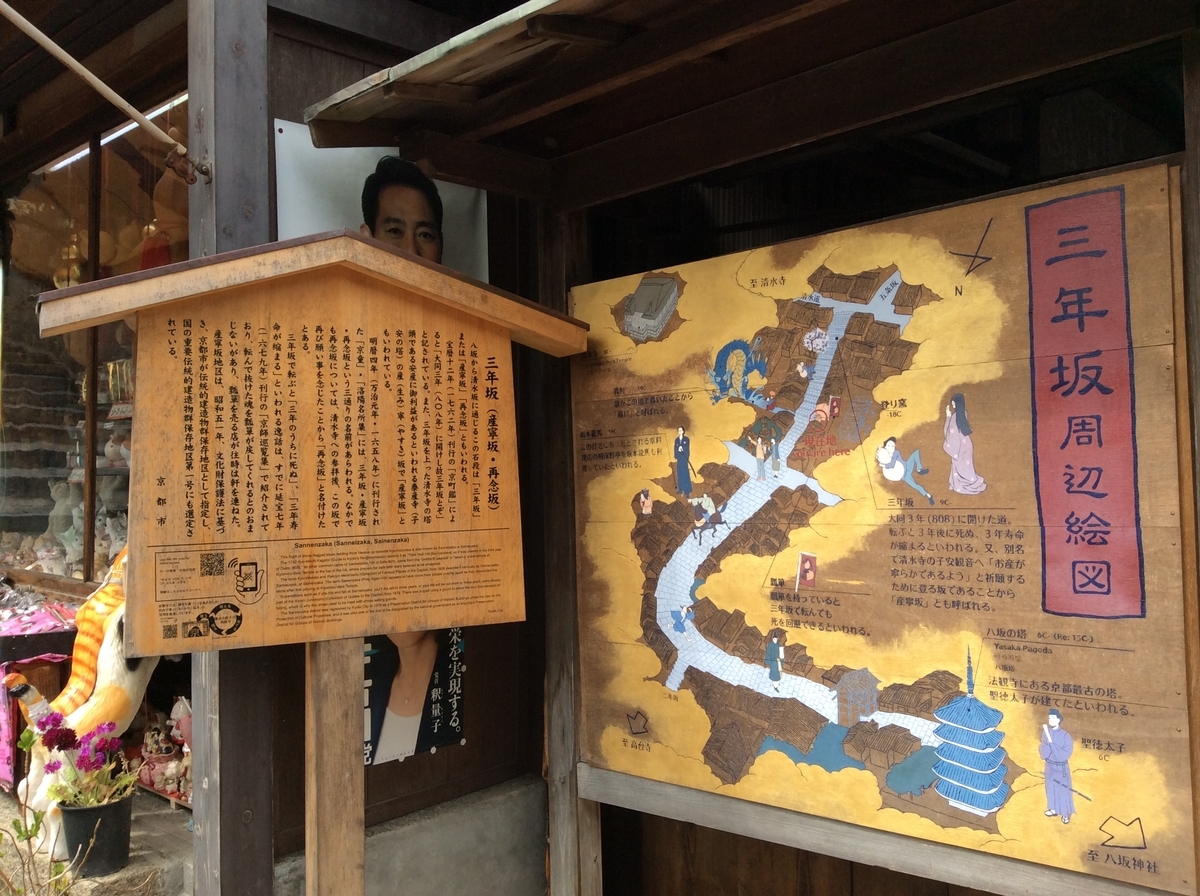 三年坂(産寧坂・再念坂)
八坂から清水坂に通じるこの石段は「三年坂」
または「産寧坂」「再念坂」ともいわれる。
宝暦十二年(一七六二年)刊行の「京町鑑」によ
ると「大同三年(八〇八年)に開けし故三年坂とぞ」
と記されている。また、三年坂を上った清水寺の塔
頭である安産に御利益があるといわれる泰産寺(子
安の塔)の産(生み)寧(やすき)坂で「産寧坂」と
もいわれている。
明暦四年(万治元年・一六五八年)に刊行され
た「京童」・「洛陽名所集」には、三年坂・産寧坂
・再念坂という三通りの名前があらわれる。なかで
も再念坂については、清水寺への参拝後、この坂で
再び願い事を念じたことから「再念坂」と名付けた
とある。
三年坂で転ぶと「三年のうちに死ぬ」、「三年寿
命が縮まる」といわれる逸話は、すでに延宝七年
(一六七九年)刊行の「京師巡覧集」で紹介されて
おり、転んで抜けた魂を瓢箪が戻してくれるとのおま
じないがあり、瓢箪を売る店が往時は軒を連ねた。
産寧坂地区は、昭和五一年、文化財保護法に基づ
き、京都市が伝統的建造物群保存地区として指定し、
国の重要伝統的建造物群保存地区第一号にも選定さ
れている。
京都市
Sannenzaka (Sanneizaka, Sainenzaka)
栄を実現する。
釈量子
三年坂周辺絵図
至 清水寺
清水道
五条坂
N
登り窯
18C
現在地
You are here
三年坂 9C
大同3年(808)に開けた道。
転ぶと3年後に死ぬ、3年寿命
が縮まるといわれる。又、別名
で清水寺の子安観音へ「お産が
寧らかであるよう」と祈願する
ために登る坂であることから
「産寧坂」とも呼ばれる。
瓢箪
瓢箪を持っていると
三年坂で転んでも
死を回避できるといわれる。
八坂の塔 6C (Re:15C-)
Yasaka Pagoda
法観寺にある京都最古の塔。
聖徳太子が建てたといわれる。
聖徳太子
6C
二年坂
至 高台寺
至 八坂神社